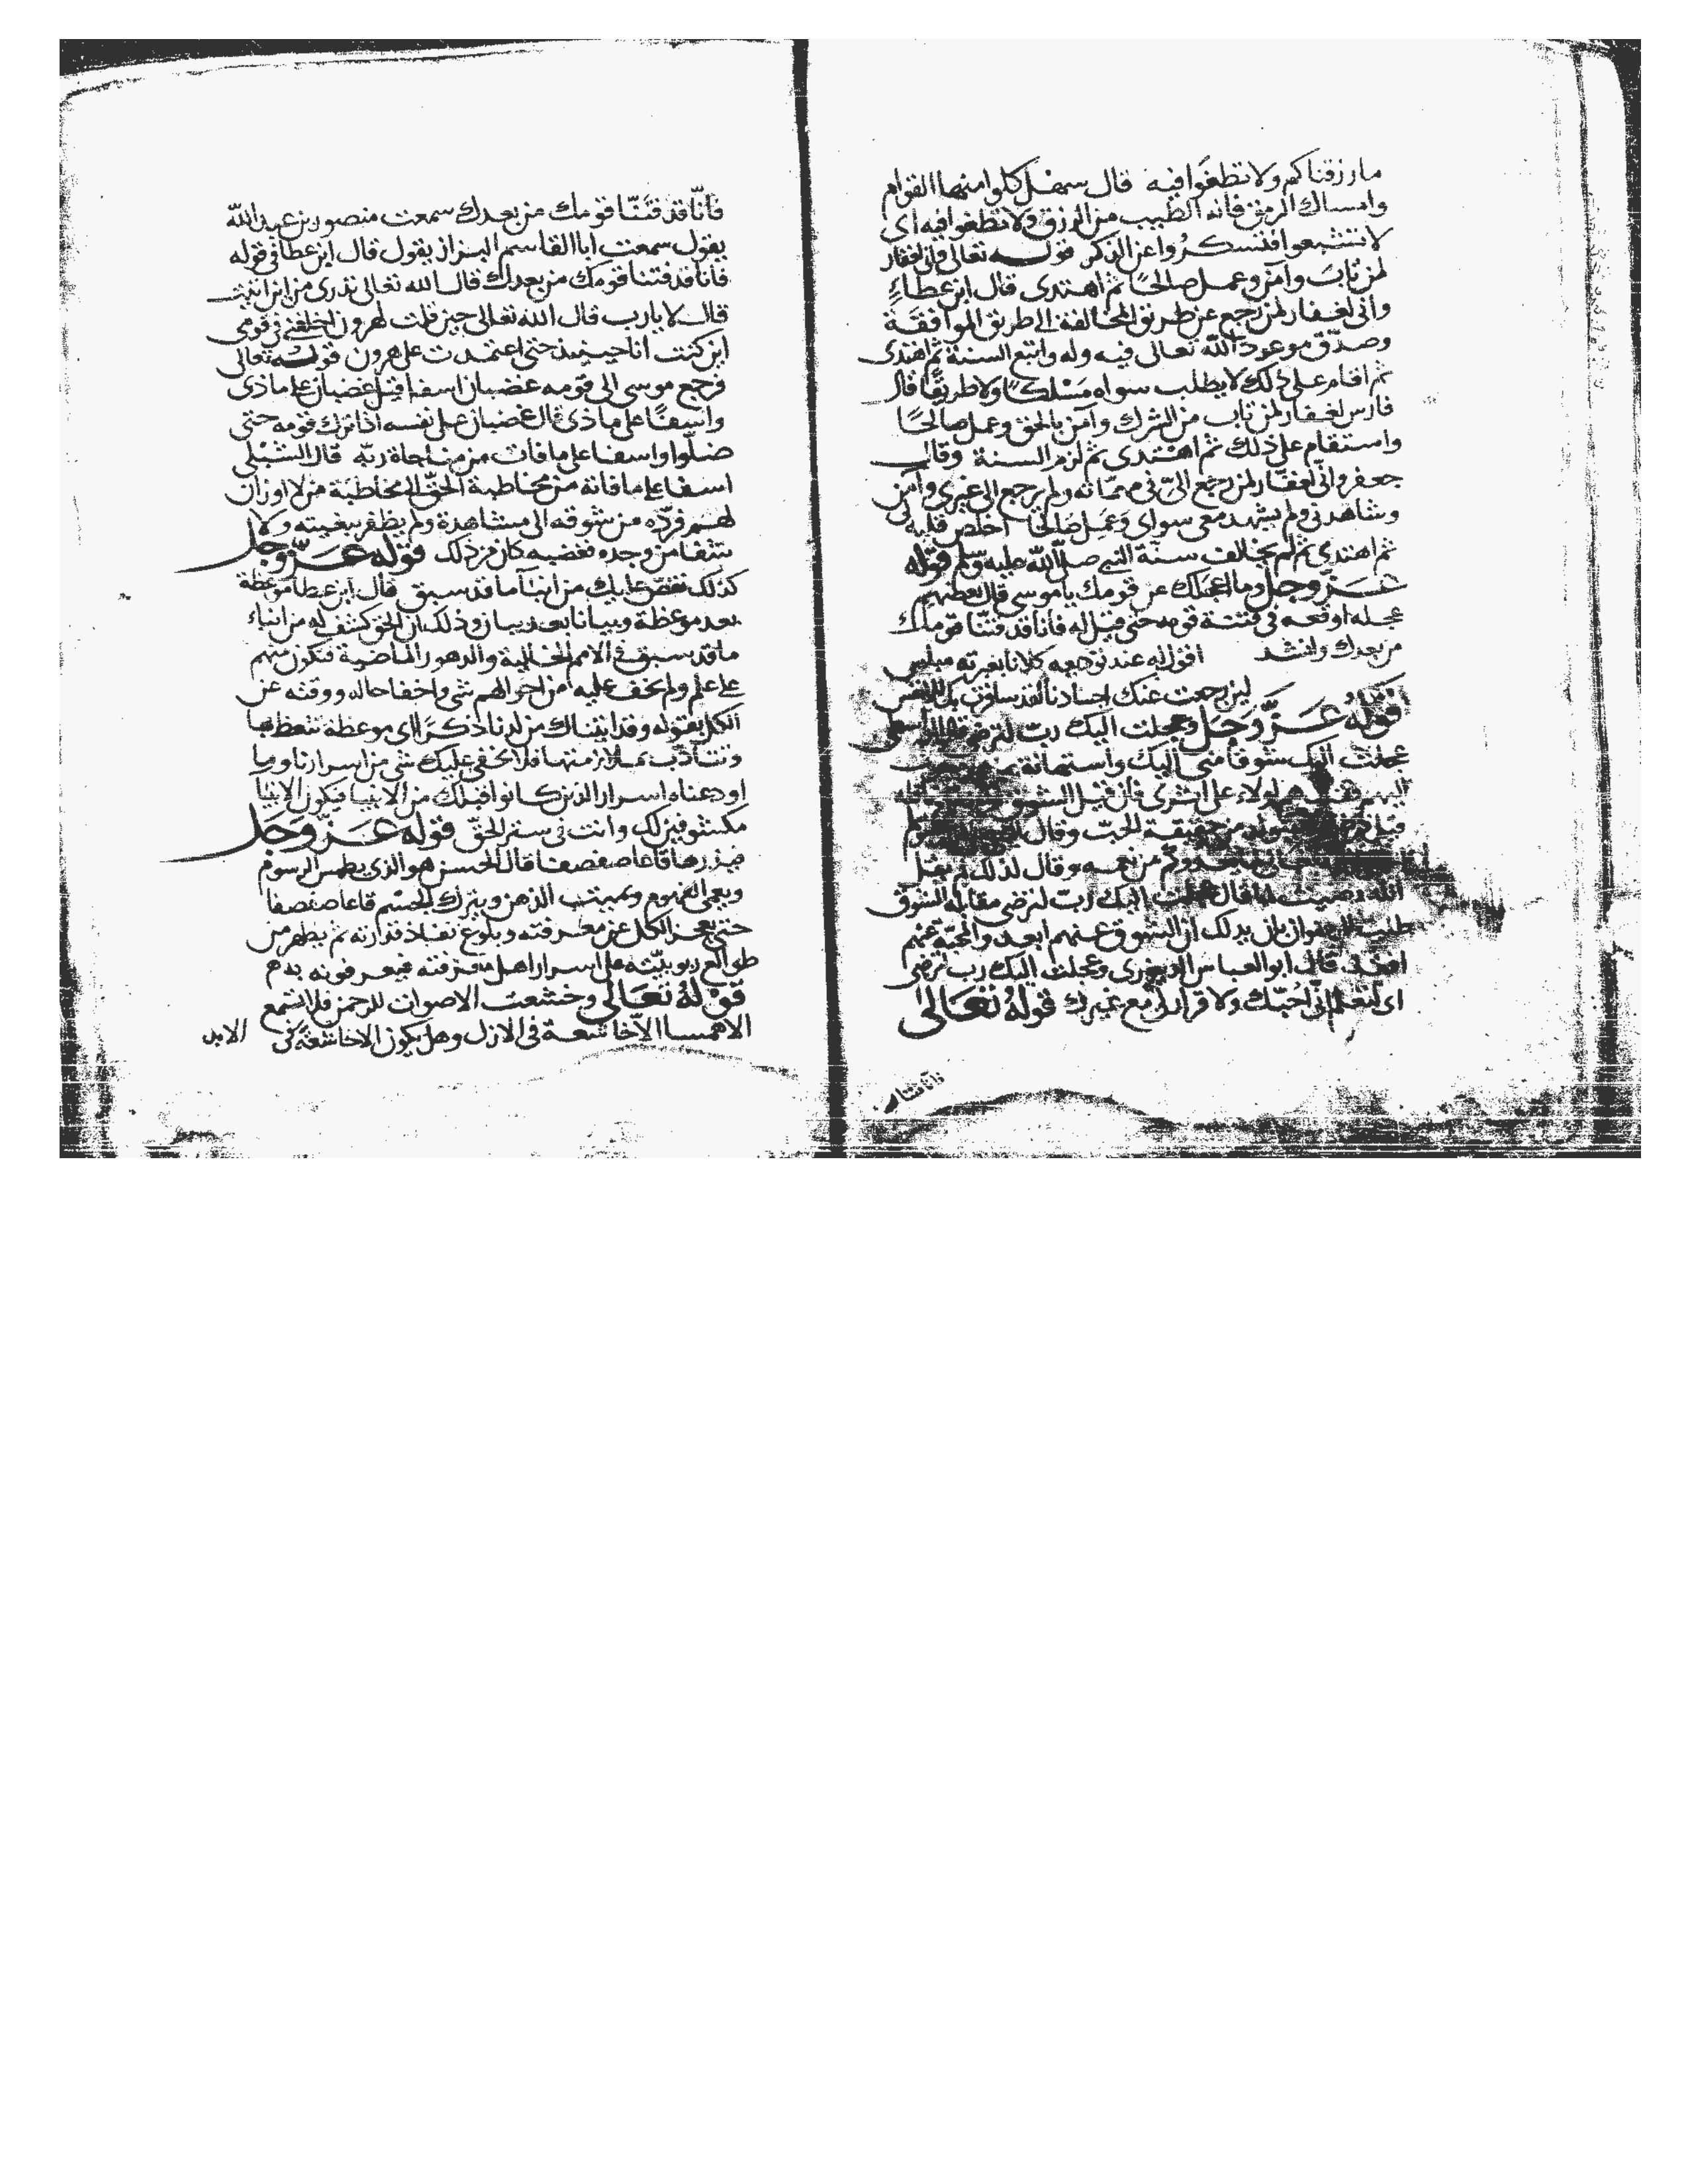 ما رزقناكم ولا تطغوا فيه قال سهل كلوا منها القوام
وامساك الرمق فانه الطيب من الرزق ولا تطغوا فيه اى
لا تتشبعوا فتسكروا عن الذكر قوله تعالى وانى لغفار
لمن تاب وآمن وعمل صالحًا ثم اهتدى قال ابن عطاء
وانى لغفار لمن رجع عن طريق المخالفة الى طريق الموافقة
وصدّق موعود الله تعالى فيه وله واتبع السنة ثم اهتدى
ثم اقام على ذلك لا يطلب سواه مسلكًا ولا طريقًا قال
فارس لغفار لمن تاب من الشرك وآمن بالحق وعمل صالحًا
واستقام على ذلك ثم اهتدى ثم لزم السنة وقال
جعفر وانّى لغفّار لمن رجع الىّ فى مهماته ولم يرجع الى غيرى وآمن
وشاهدنى ولم يشهد معى سواى وعمل صالحًا اخلص قلبه لى
ثم اهتدى ثم لم يخالف سنّة النبى صلى الله عليه وسلم قوله
عزّ وجل وما اعجلك عن قومك يا موسى قال بعضهم
عجله اوقعه فى فتنة قومه حتى قيل له فانا قد فتنّا قومك
من بعدك وانشد اقول له عند توديعه كلانا بعبرته مبلس
لئن رجعت عنك اجسادنا لقد سافرت بك الانفس
قوله عزّ وجل وعجلت اليك ربّ لترضى
عجلت اليك شوقًا منى اليك واستهانة
هم اولاء على اثرى فان قيل الشوق
من حقيقة الحبّ وقال
وقال لذلك لم يقل
قال عجلت اليك ربّ لترضى مقابلة الشوق
لان الشوق عنهم ابعد والمحبّة عنهم
قال ابو العباس الدينورى وعجلت اليك رب لترضى
اى لتعلم انّى احبّك ولا قرار لى مع غيرك قوله تعالى
فانّا قد فتنّا قومك من بعدك سمعت منصور بن عبد الله
يقول سمعت ابا القاسم البزاز يقول قال ابن عطا فى قوله
فانا قد فتنا قومك من بعدك قال الله تعالى تدرى من اين اتيت
قال لا يا رب قال الله تعالى حين قلت لهرون اخلفنى فى قومى
اين كنت انا حينئذ حتى اعتمدت على هرون قوله تعالى
فرجع موسى الى قومه غضبان اسفا قيل غضبان على ماذى
واسفًا على ماذى قال غضبان على نفسه اذا ترك قومه حتى
ضلّوا واسفا على ما فات من مناجاة ربّه قال الشبلى
اسفا على ما فاته من مخاطبة الحقّ الى مخاطبة من لا اوزان
لهم فردّه من شوقه الى مشاهدة ولم يظفر ببغيته ولا
تشفا من وجده فغضبه كان من ذلك قوله عزّ وجل
كذلك نقصّ عليك من انبآ ما قد سبق قال ابن عطا موعظة
بعد موعظة وبيانا بعد بيان وذلك ان الحق كشف له من انباء
ما قد سبق فى الامم الخالية والدهور الماضية فتكون منهم
على علم ولم يخف عليه من احوالهم شى واخفا حاله ووقته عن
الكل بقوله وقد اتيناك من لدنا ذكرًا اى موعظة تتعظ بها
وتتأدّب بملازمتها فلا يخفى عليك شى من اسرارنا وما
اودعناه اسرار الذين كانوا قبلك من الانبيا فيكون الانبيا
مكشوفين لك وانت فى ستر الحقّ قوله عزّ وجل
فيذرها قاعا صفصفا قال الحسن هو الذى يطمس الرسوم
ويعمى الفهوم ويميت الذهن ويترك الجسم قاعا صفصفا
حتى يعجز الكل عن معرفته وبلوغ نفاذ قدرته ثم يظهر من
طوالع ربوبيّته على اسرار اهل معرفته فيعرفونه بدهم
قوله تعالى وخشعت الاصوات للرحمن فلا تسمع
الا همسا الاّ خاشعة فى الازل وهل يكون الا خاشعة فى الابد